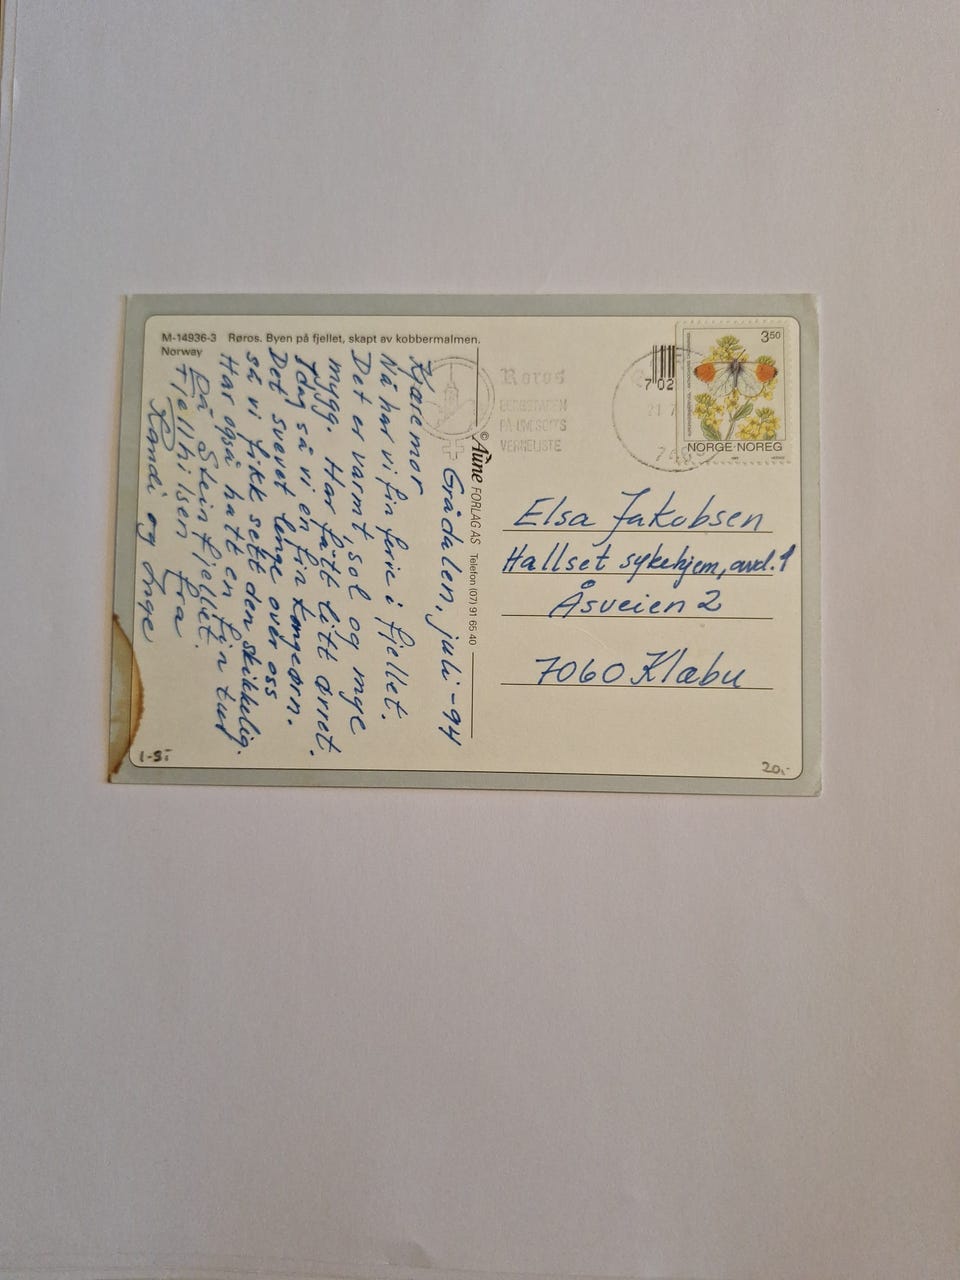 M-14936-3 Røros. Byen på fjellet, skapt av kobbermalmen.
Norway
Grådalen, juli -94
Kjære mor
Nå har vi fin ferie i fjellet.
Det er varmt, sol og mye
mygg. Har fått litt ørret.
Idag så vi en fin kongeørn.
Det svevet lenge over oss
så vi fikk sett den skikkelig.
Har også hatt en fin tur
på Steinfjellet.
Fjellhilsen fra
Randi og Inge
© Aune FORLAG AS Telefon (07) 91 65 40
Røros
BERGSTADEN
PÅ UNESCO'S
VERNELISTE
7 02
21 7
3 50
NORGE·NOREG
Elsa Jakobsen
Hallset sykehjem, avd. 1
Åsveien 2
7060 Klæbu
1-3:
20,-